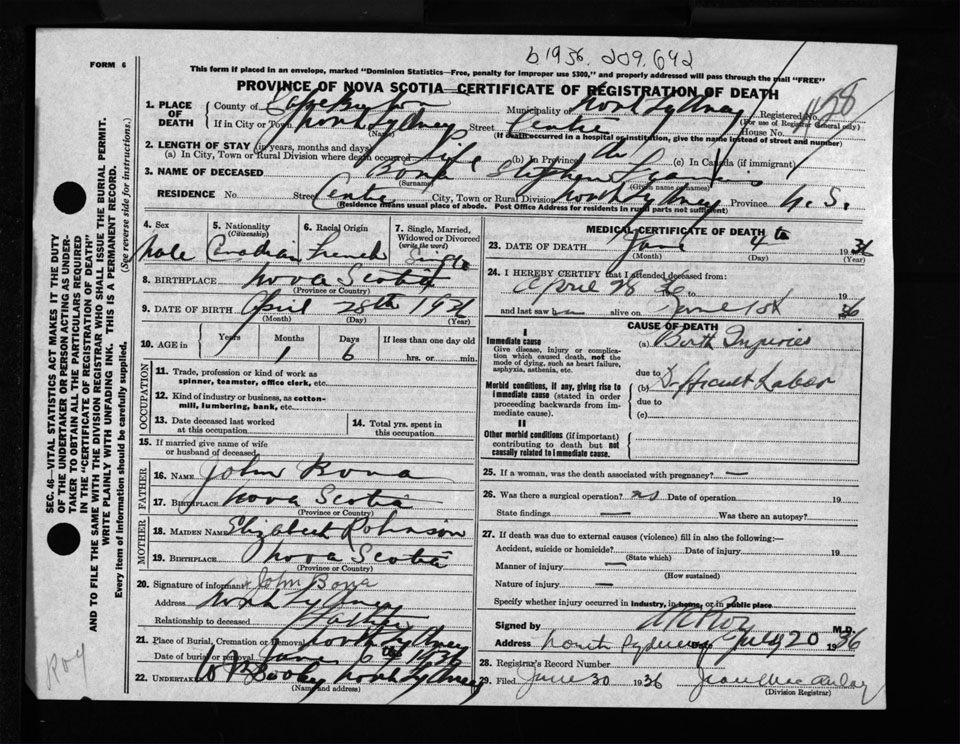 b 1936. 209.642
FORM 6
This form if placed in an envelope, marked "Dominion Statistics—Free, penalty for improper use $300," and properly addressed will pass through the mail "FREE"
PROVINCE OF NOVA SCOTIA—CERTIFICATE OF REGISTRATION OF DEATH
SEC. 46—VITAL STATISTICS ACT MAKES IT THE DUTY
OF THE UNDERTAKER OR PERSON ACTING AS UNDER-
TAKER TO OBTAIN ALL THE PARTICULARS REQUIRED
IN THE "CERTIFICATE OF REGISTRATION OF DEATH"
AND TO FILE THE SAME WITH THE DIVISION REGISTRAR WHO SHALL ISSUE THE BURIAL PERMIT.
WRITE PLAINLY WITH UNFADING INK. THIS IS A PERMANENT RECORD.
Every item of information should be carefully supplied. (See reverse side for instructions.)
1. PLACE OF DEATH County of Cape Breton Municipality of North Sydney Registered No.
(For use of Registrar General only)
If in City or Town North Sydney Street Centre House No.
(Name) (If death occurred in a hospital or institution, give the name instead of street and number)
2. LENGTH OF STAY (in years, months and days)
(a) In City, Town or Rural Division where death occurred Life (b) In Province (c) In Canada (if immigrant)
3. NAME OF DECEASED Bona Stephen Francis
(Surname) (Given name or names)
RESIDENCE No. Street Centre City, Town or Rural Division North Sydney Province N.S.
(Residence means usual place of abode. Post Office Address for residents in rural parts not sufficient)
4. Sex 5. Nationality (Citizenship) 6. Racial Origin 7. Single, Married, Widowed or Divorced (write the word)
Male Canadian French Single
8. BIRTHPLACE Nova Scotia
(Province or Country)
9. DATE OF BIRTH April 28th
(Month) (Day) (Year)
10. AGE in Years Months Days If less than one day old
1 6 hrs. or min.
OCCUPATION
11. Trade, profession or kind of work as
spinner, teamster, office clerk, etc.
12. Kind of industry or business, as cotton-
mill, lumbering, bank, etc.
13. Date deceased last worked at this occupation 14. Total yrs. spent in this occupation
15. If married give name of wife
or husband of deceased
FATHER
16. NAME John Bona
17. BIRTHPLACE Nova Scotia
(Province or Country)
MOTHER
18. MAIDEN NAME Elizabeth Robinson
19. BIRTHPLACE Nova Scotia
(Province or Country)
20. Signature of informant John Bona
Address North Sydney
Relationship to deceased Father
21. Place of Burial, Cremation or Removal North Sydney
Date of burial or removal June 6th 1936
22. UNDERTAKER North Sydney
(Name and address)
Roy
MEDICAL CERTIFICATE OF DEATH
23. DATE OF DEATH June 4th 1936
(Month) (Day) (Year)
24. I HEREBY CERTIFY that I attended deceased from:
April 28 36 to 19
and last saw alive on June 1st 1936
I
Immediate cause
Give disease, injury or complica-
tion which caused death, not the
mode of dying, such as heart failure,
asphyxia, asthenia, etc.
Morbid conditions, if any, giving rise to
immediate cause (stated in order
proceeding backwards from im-
mediate cause).
II
Other morbid conditions (if important)
contributing to death but not
causally related to immediate cause.
CAUSE OF DEATH
(a) Birth Injuries
due to
(b) Difficult Labor
due to
(c)
25. If a woman, was the death associated with pregnancy? —
26. Was there a surgical operation? no Date of operation 19
State findings — Was there an autopsy?
27. If death was due to external causes (violence) fill in also the following:—
Accident, suicide or homicide? Date of injury 19
(State which)
Manner of injury —
(How sustained)
Nature of injury —
Specify whether injury occurred in industry, in home, or in public place
Signed by M.D.
Address North Sydney Date July 20 1936
28. Registrar's Record Number
29. Filed June 30 1936 Jean MacAulay
(Division Registrar)